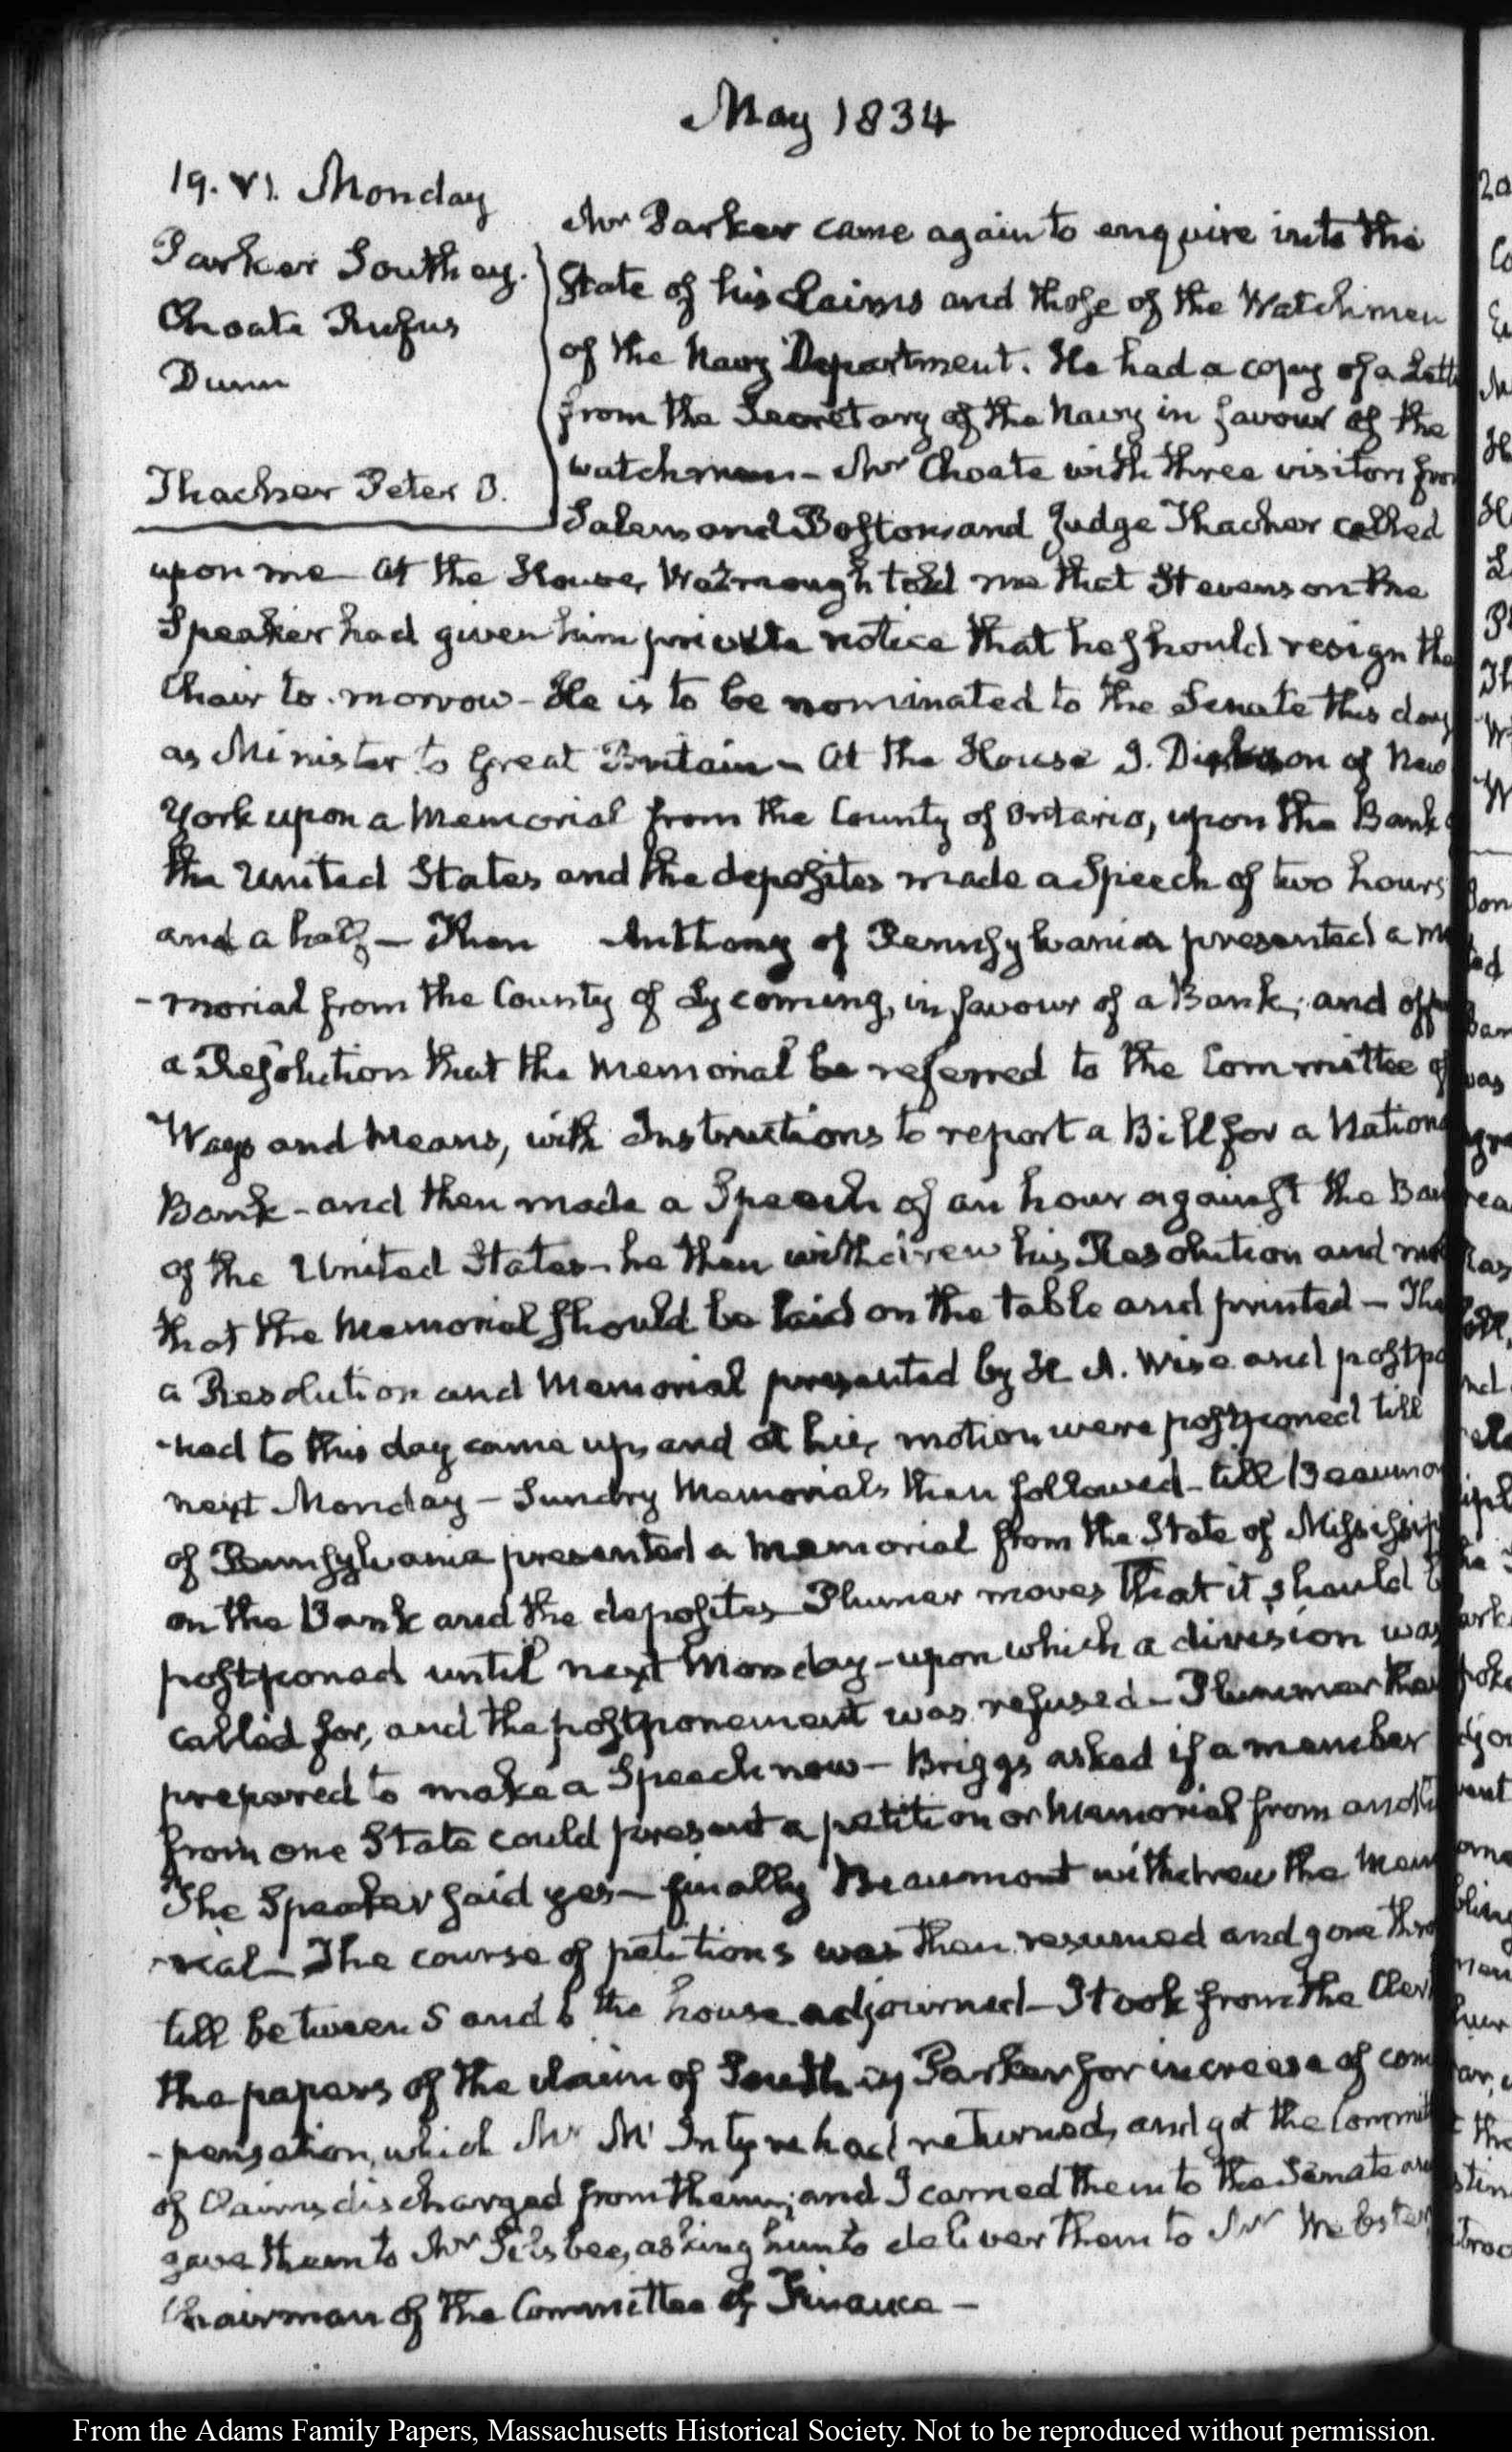 May 1834
19. VI. Monday
Parker Southey.
Choate Rufus
Dunn
Thacher Peter O.
Mr Parker came again to enquire into the
State of his Claims and those of the Watchmen
of the Navy Department. He had a copy of a Lett
from the Secretary of the Navy in favour of the
watchmen – Mr Choate with three visitors fro
Salem and Boston and Judge Thacher called
upon me – At the House, Watmough told me that Stevenson the
Speaker had given him private notice that he should resign the
Chair to-morrow – He is to be nominated to the Senate this day
as Minister to Great Britain – At the House J. Dickson of New
York upon a Memorial from the County of Ontario, upon the Bank
the United States and the deposites made a Speech of two hours
and a half – Then Anthony of Pennsylvania presented a me
-morial from the County of Lycoming, in favour of a Bank; and offe
a Resolution that the Memorial be referred to the Committee of
Ways and Means, with Instructions to report a Bill for a Nationa
Bank – and then made a Speech of an hour against the Ban
of the United States – he then withdrew his Resolution and mo
that the Memorial should be laid on the table and printed – The
a Resolution and Memorial presented by H. A. Wise and postpo
-ned to this day came up, and at his motion were postponed till
next Monday – Sundry Memorials then followed – till Beaumon
of Pennsylvania presented a Memorial from the State of Mississip
on the Bank and the deposites – Plumer moves that it should b
postponed until next Monday – upon which a division was
called for, and the postponement was refused – Plummer the
prepared to make a Speech now – Briggs asked if a member
from one State could present a petition or Memorial from anoth
The Speaker said yes – finally Beaumont withdrew the Mem
-rial – The course of petitions was then resumed and gone thro
till between 5 and 6 the house adjourned – I took from the Cler
the papers of the claim of Southey Parker for increase of com
-pensation, which Mr McIntyre had returned, and got the Committ
of Claims discharged from them; and I carried them to the Senate and
gave them to Mr Silsbee, asking him to deliver them to Mr Webster
Chairman of the Committee of Finance –
From the Adams Family Papers, Massachusetts Historical Society. Not to be reproduced without permission.